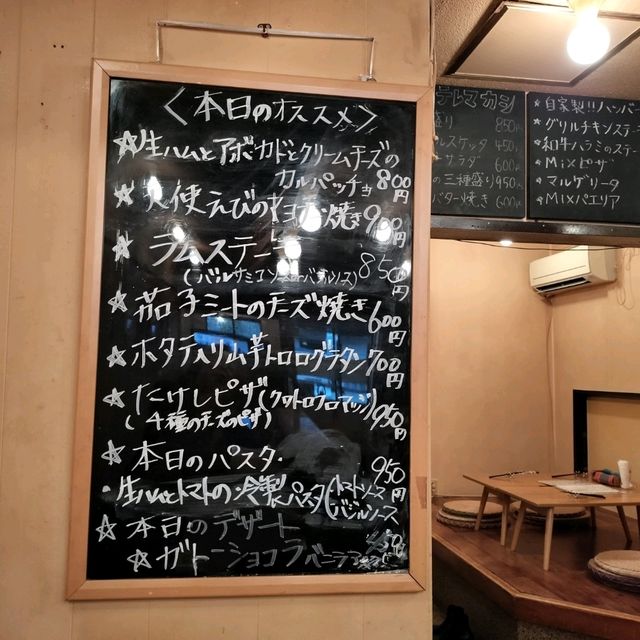 <本日のオススメ>
☆生ハムとアボカドとクリームチーズの
カルパッチョ 800円
☆天使えびのマヨネーズ焼き 900円
☆ラムステーキ 850円
(バルサミコソースorバジルソース)
☆茄子ミートのチーズ焼き 600円
☆ホタテ入り山芋トロログラタン 700円
☆たけしピザ(クワトロフロマッジ) 950円
(4種のチーズのピザ)
☆本日のパスタ・ 950円
・生ハムとトマトの冷製パスタ(トマトソース
バジルソース
☆本日のデザート
☆ガトーショコラ 450
850円
450円
サラダ 600円
の三種盛り 950円
バター焼き 600円
★自家製!!ハンバー
★グリルチキンステー
★和牛ハラミのステー
★Mixピザ
★マルゲリータ
★MIXパエリア